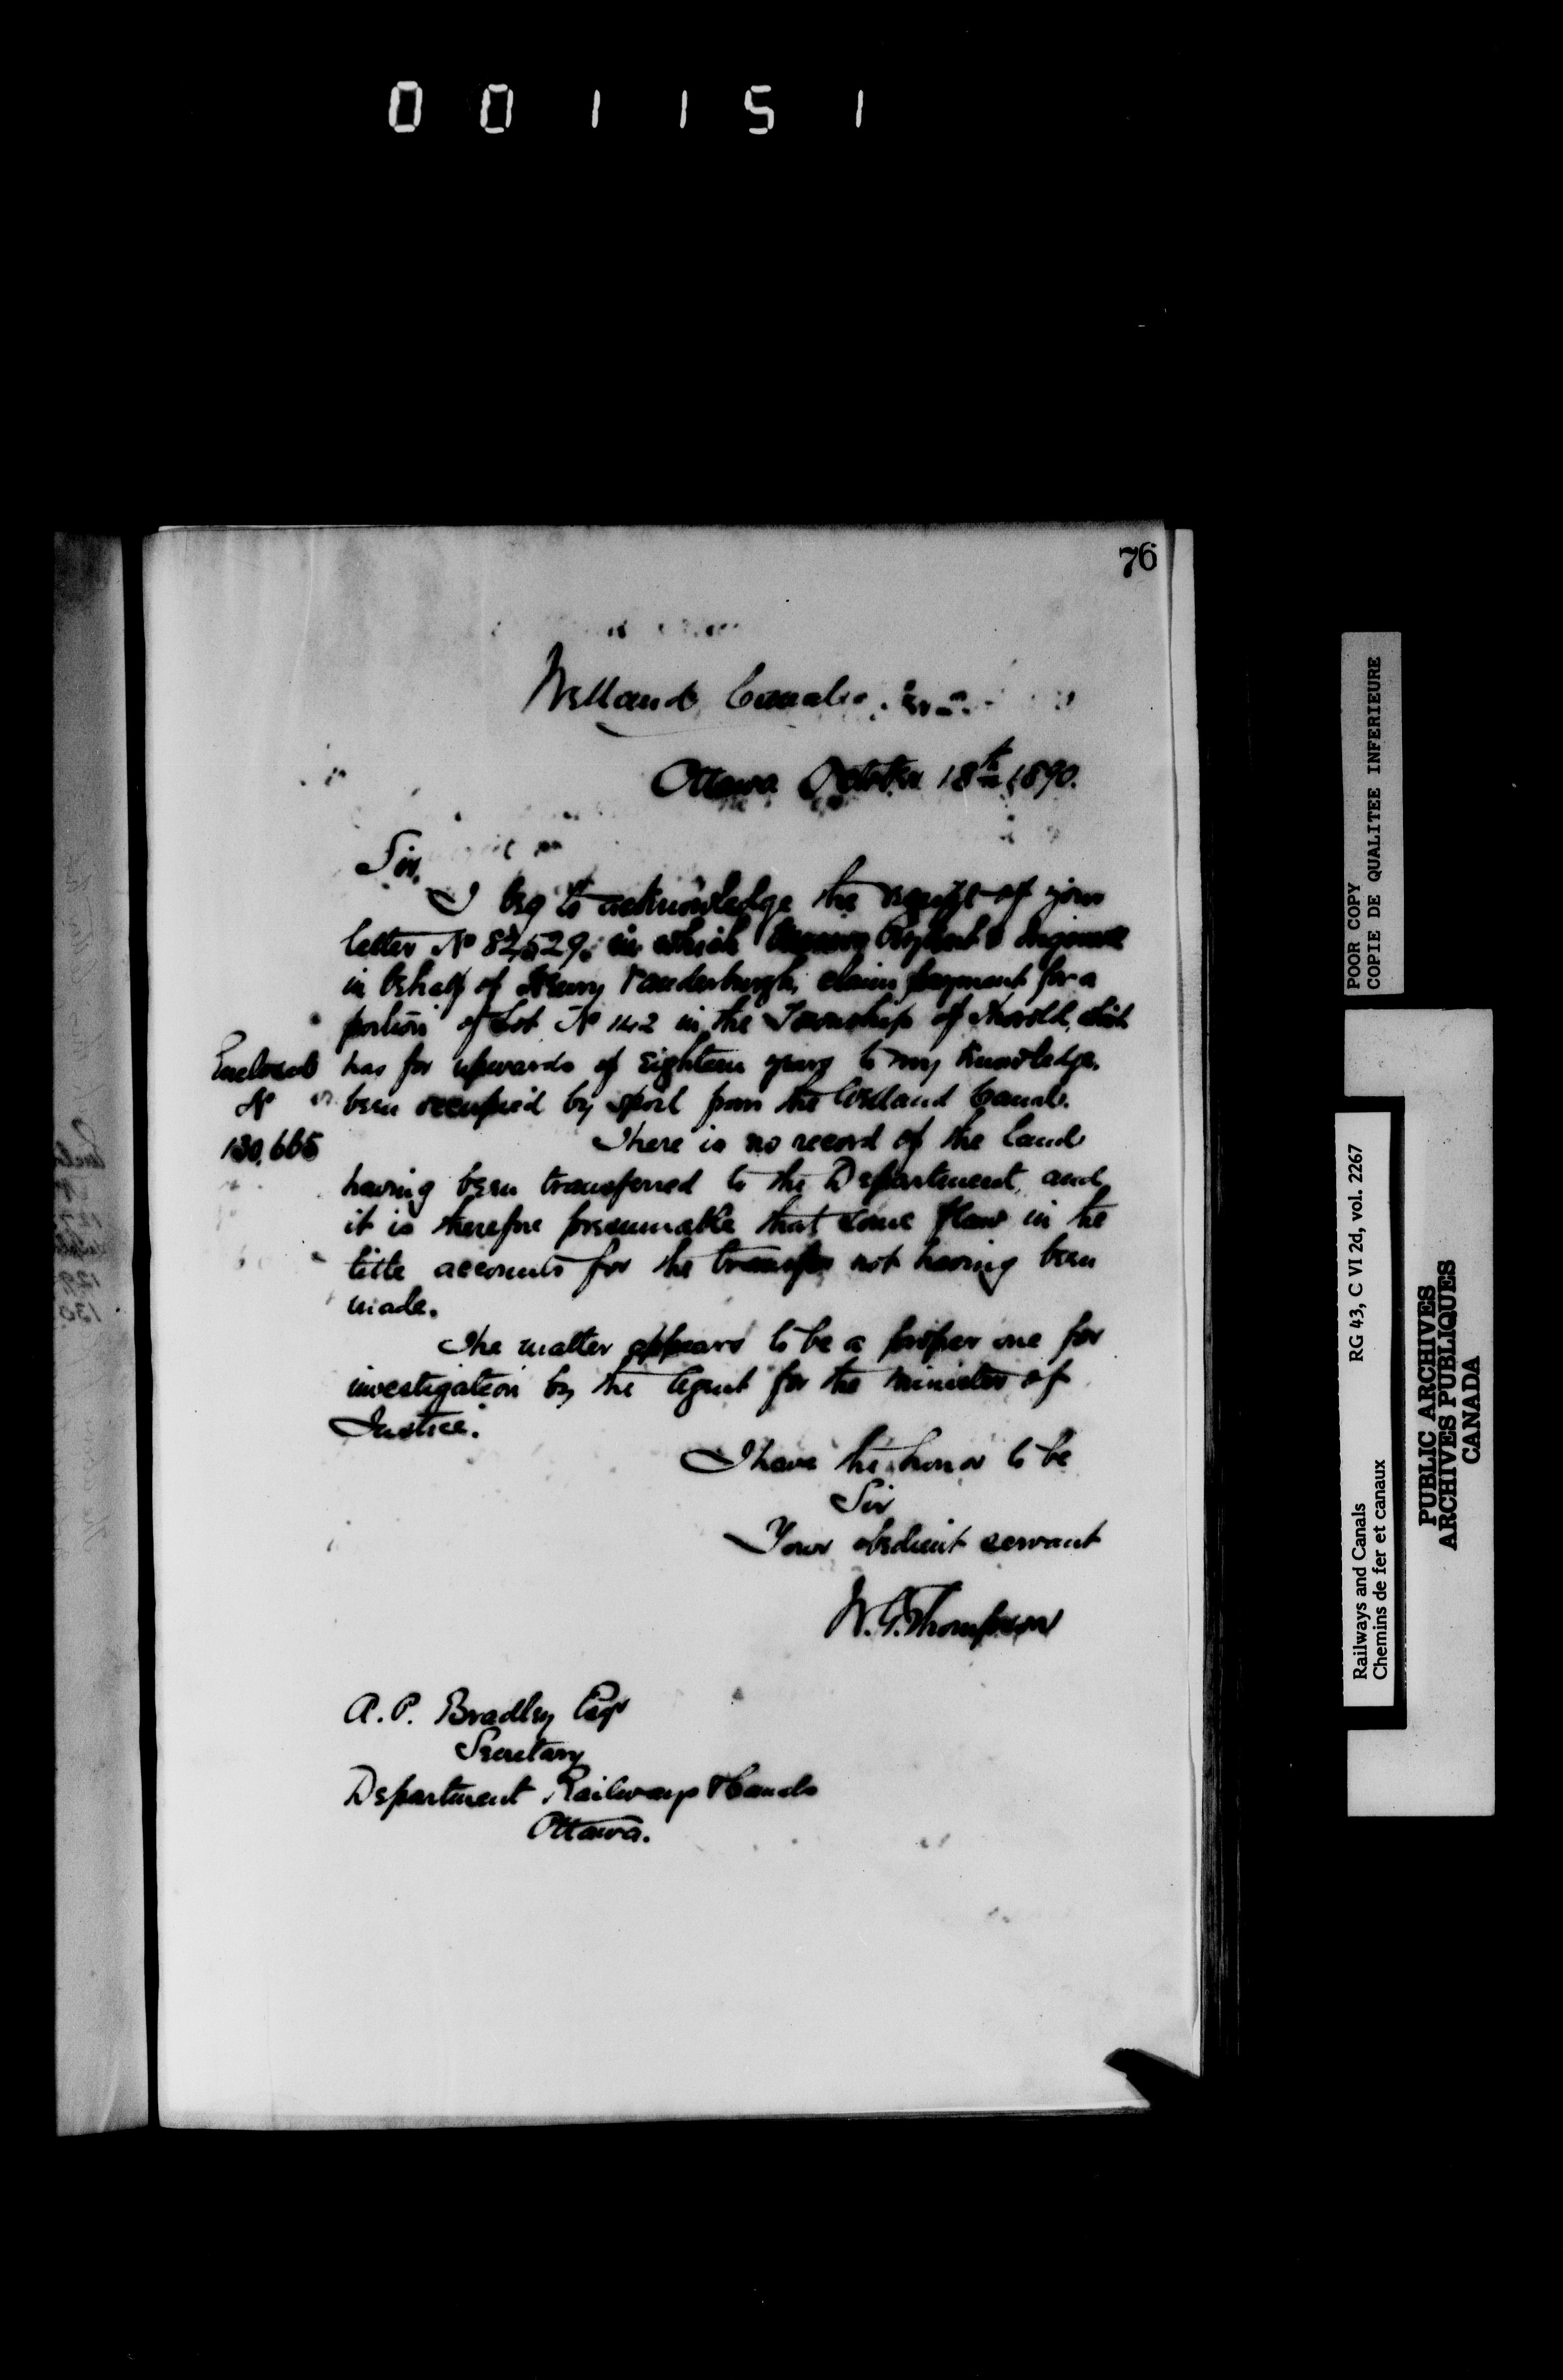 001151
76
Welland Canal
Ottawa October 18th 1890.
Sir,
I beg to acknowledge the receipt of your
letter No 82,529, in which
in behalf of Henry Vanderburgh, claim payment for a
portion of Lot No 142 in the Township of Thorold, which
has for upwards of eighteen years to my knowledge,
been occupied by spoil from the Welland Canal.
Enclosed
No
130,665
There is no record of the land
having been transferred to the Department, and
it is therefore presumable that some flaw in the
title accounts for the transfer not having been
made.
The matter appears to be a proper one for
investigation by the Agent for the Minister of
Justice.
I have the honor to be
Sir
Your obedient servant
W. G. Thompson
A. P. Bradley Esqr
Secretary
Department Railways & Canals
Ottawa.
POOR COPY
COPIE DE QUALITEE INFERIEURE
Railways and Canals RG 43, C VI 2d, vol. 2267
Chemins de fer et canaux
PUBLIC ARCHIVES
ARCHIVES PUBLIQUES
CANADA